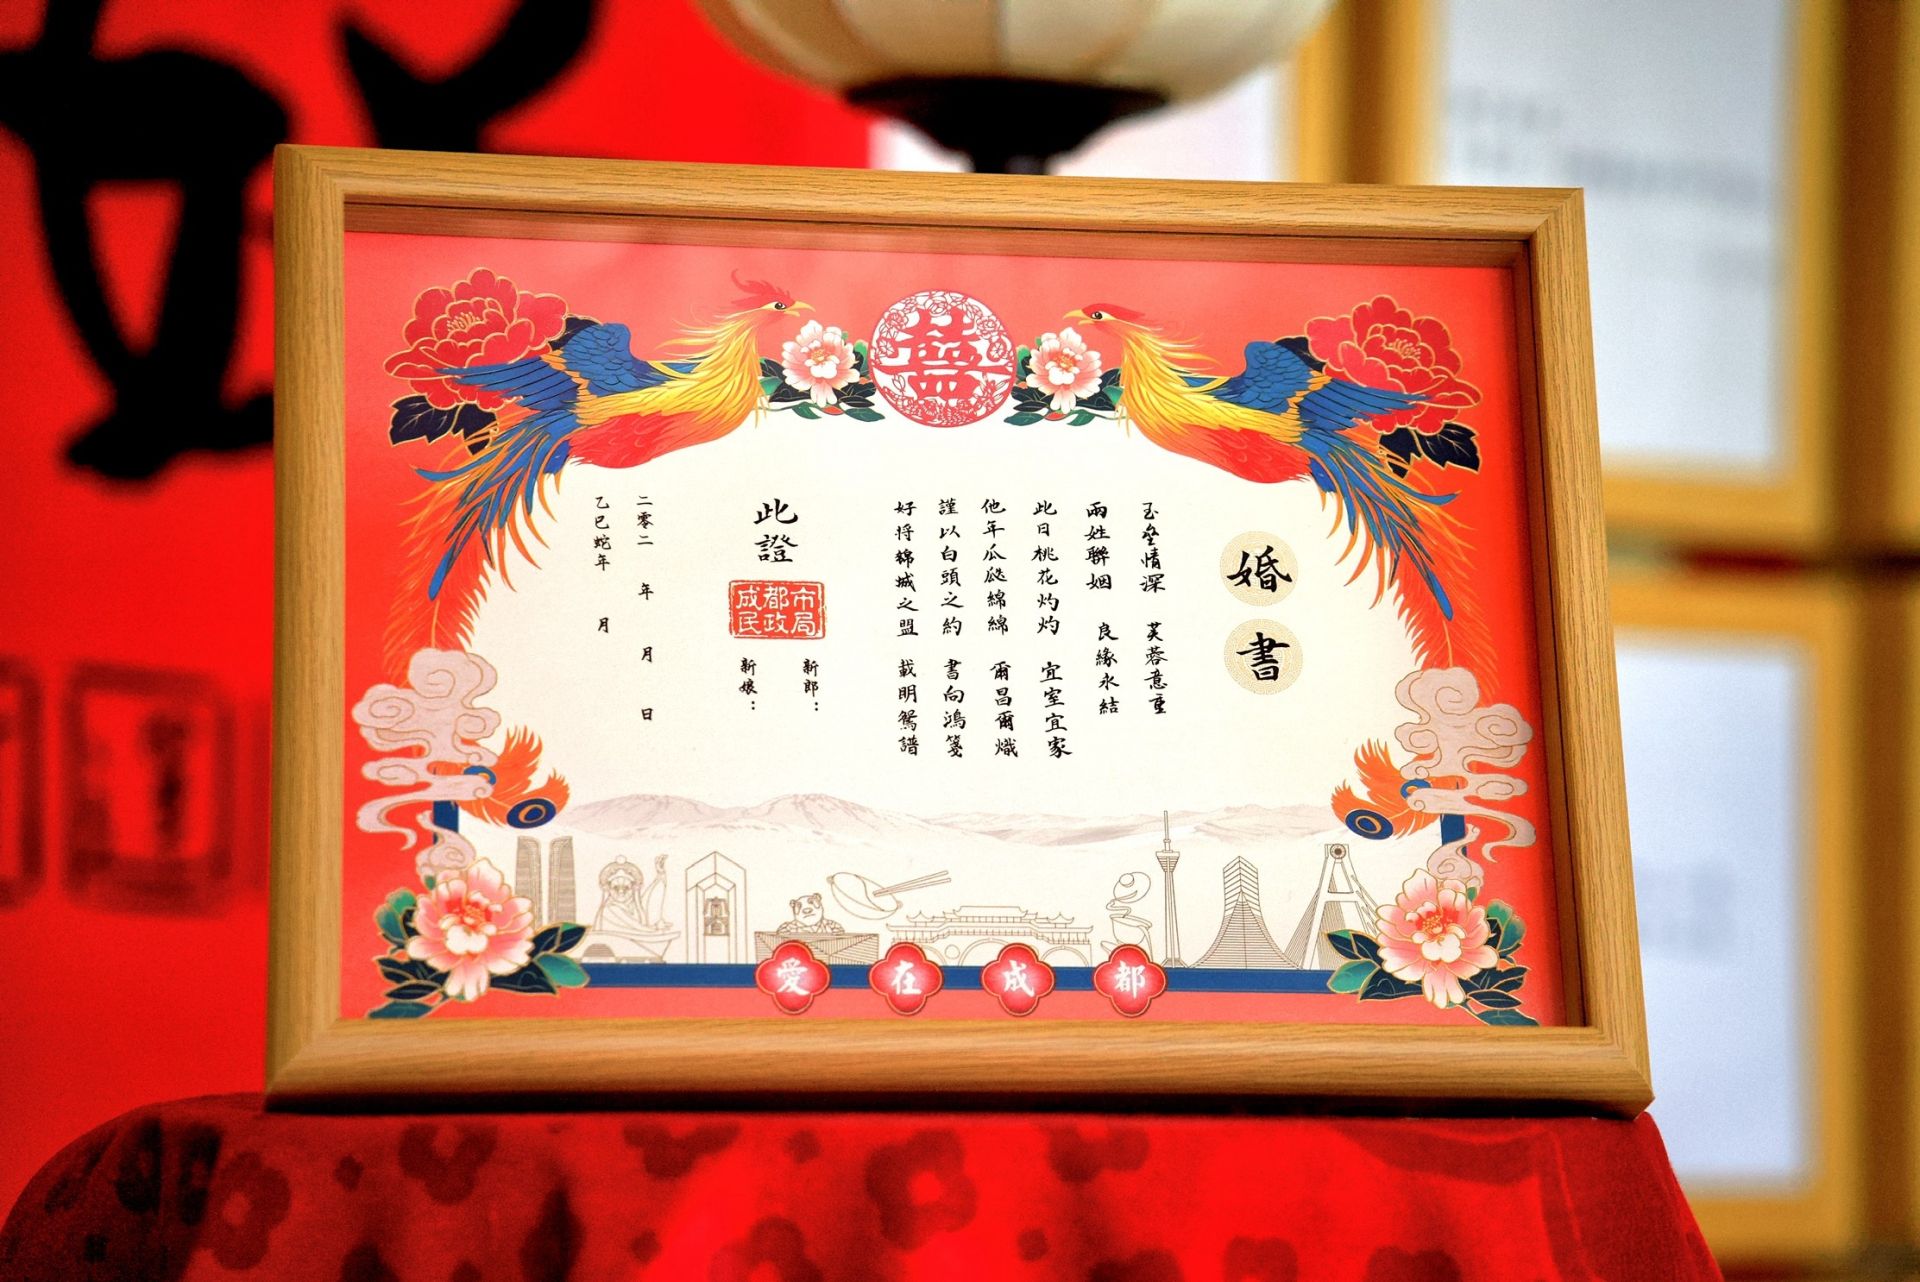 囍
婚書
玉壘情深 芙蓉意重
兩姓聯姻 良緣永結
此日桃花灼灼 宜室宜家
他年瓜瓞綿綿 爾昌爾熾
謹以白頭之約 書向鴻箋
好將錦城之盟 載明鴛譜
此證
成都市
民政局
新郎：
新娘：
二零二 年 月 日
乙巳蛇年 月
愛在成都